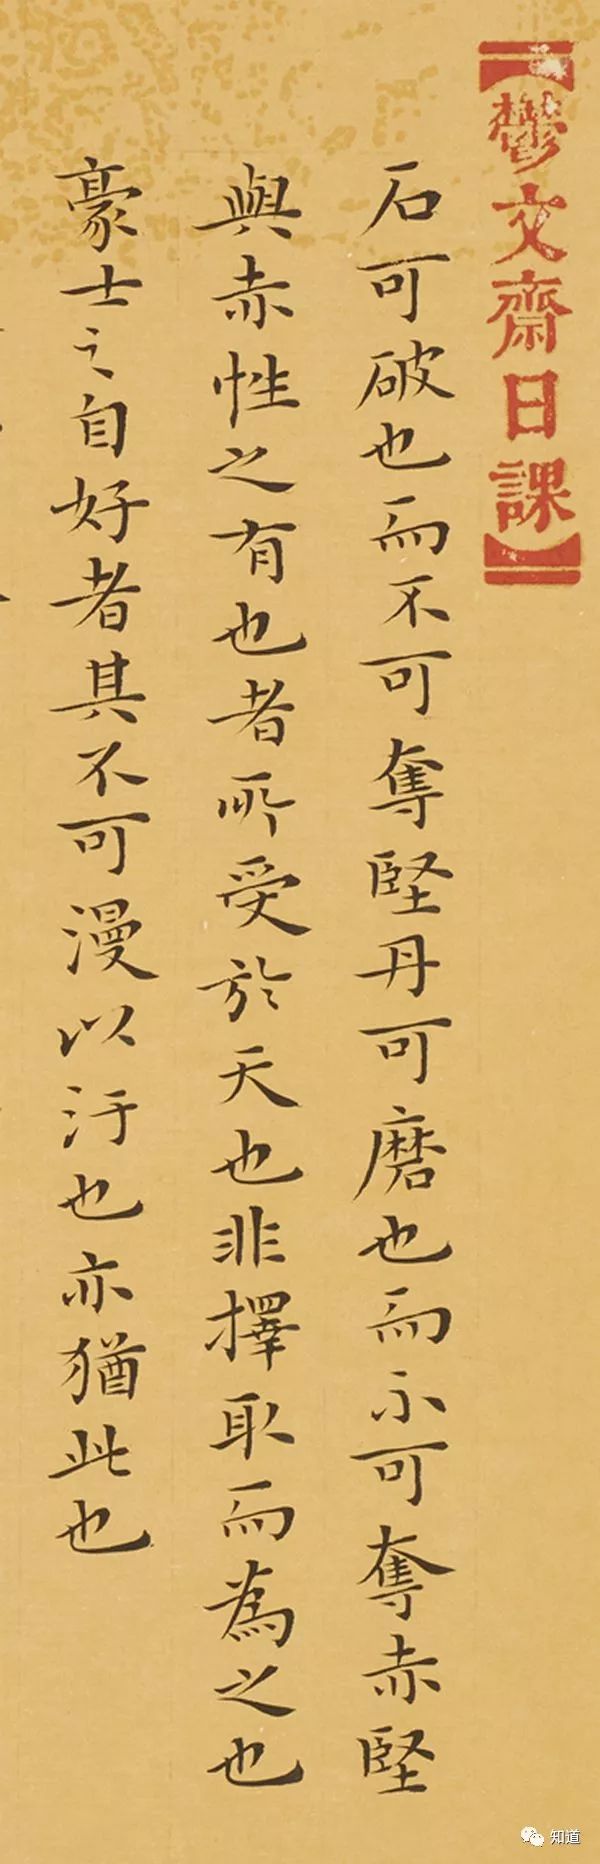 【鬱文齋日課】
石可破也而不可奪堅丹可磨也而不可奪赤堅
與赤性之有也者所受於天也非擇取而為之也
豪士之自好者其不可漫以汙也亦猶此也
知道